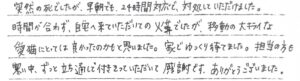 突然の死でしたが、早朝でも、24時間対応で、対処していただけました。
時間が合わず、自宅へ来ていただいての火葬でしたが、移動の大キライな
愛猫にとっては良かったのかなと思いました。家でゆっくり待てました。担当の方も
寒い中、ずっと立ち通しで付きそっていただいて感謝です。ありがとうございました。